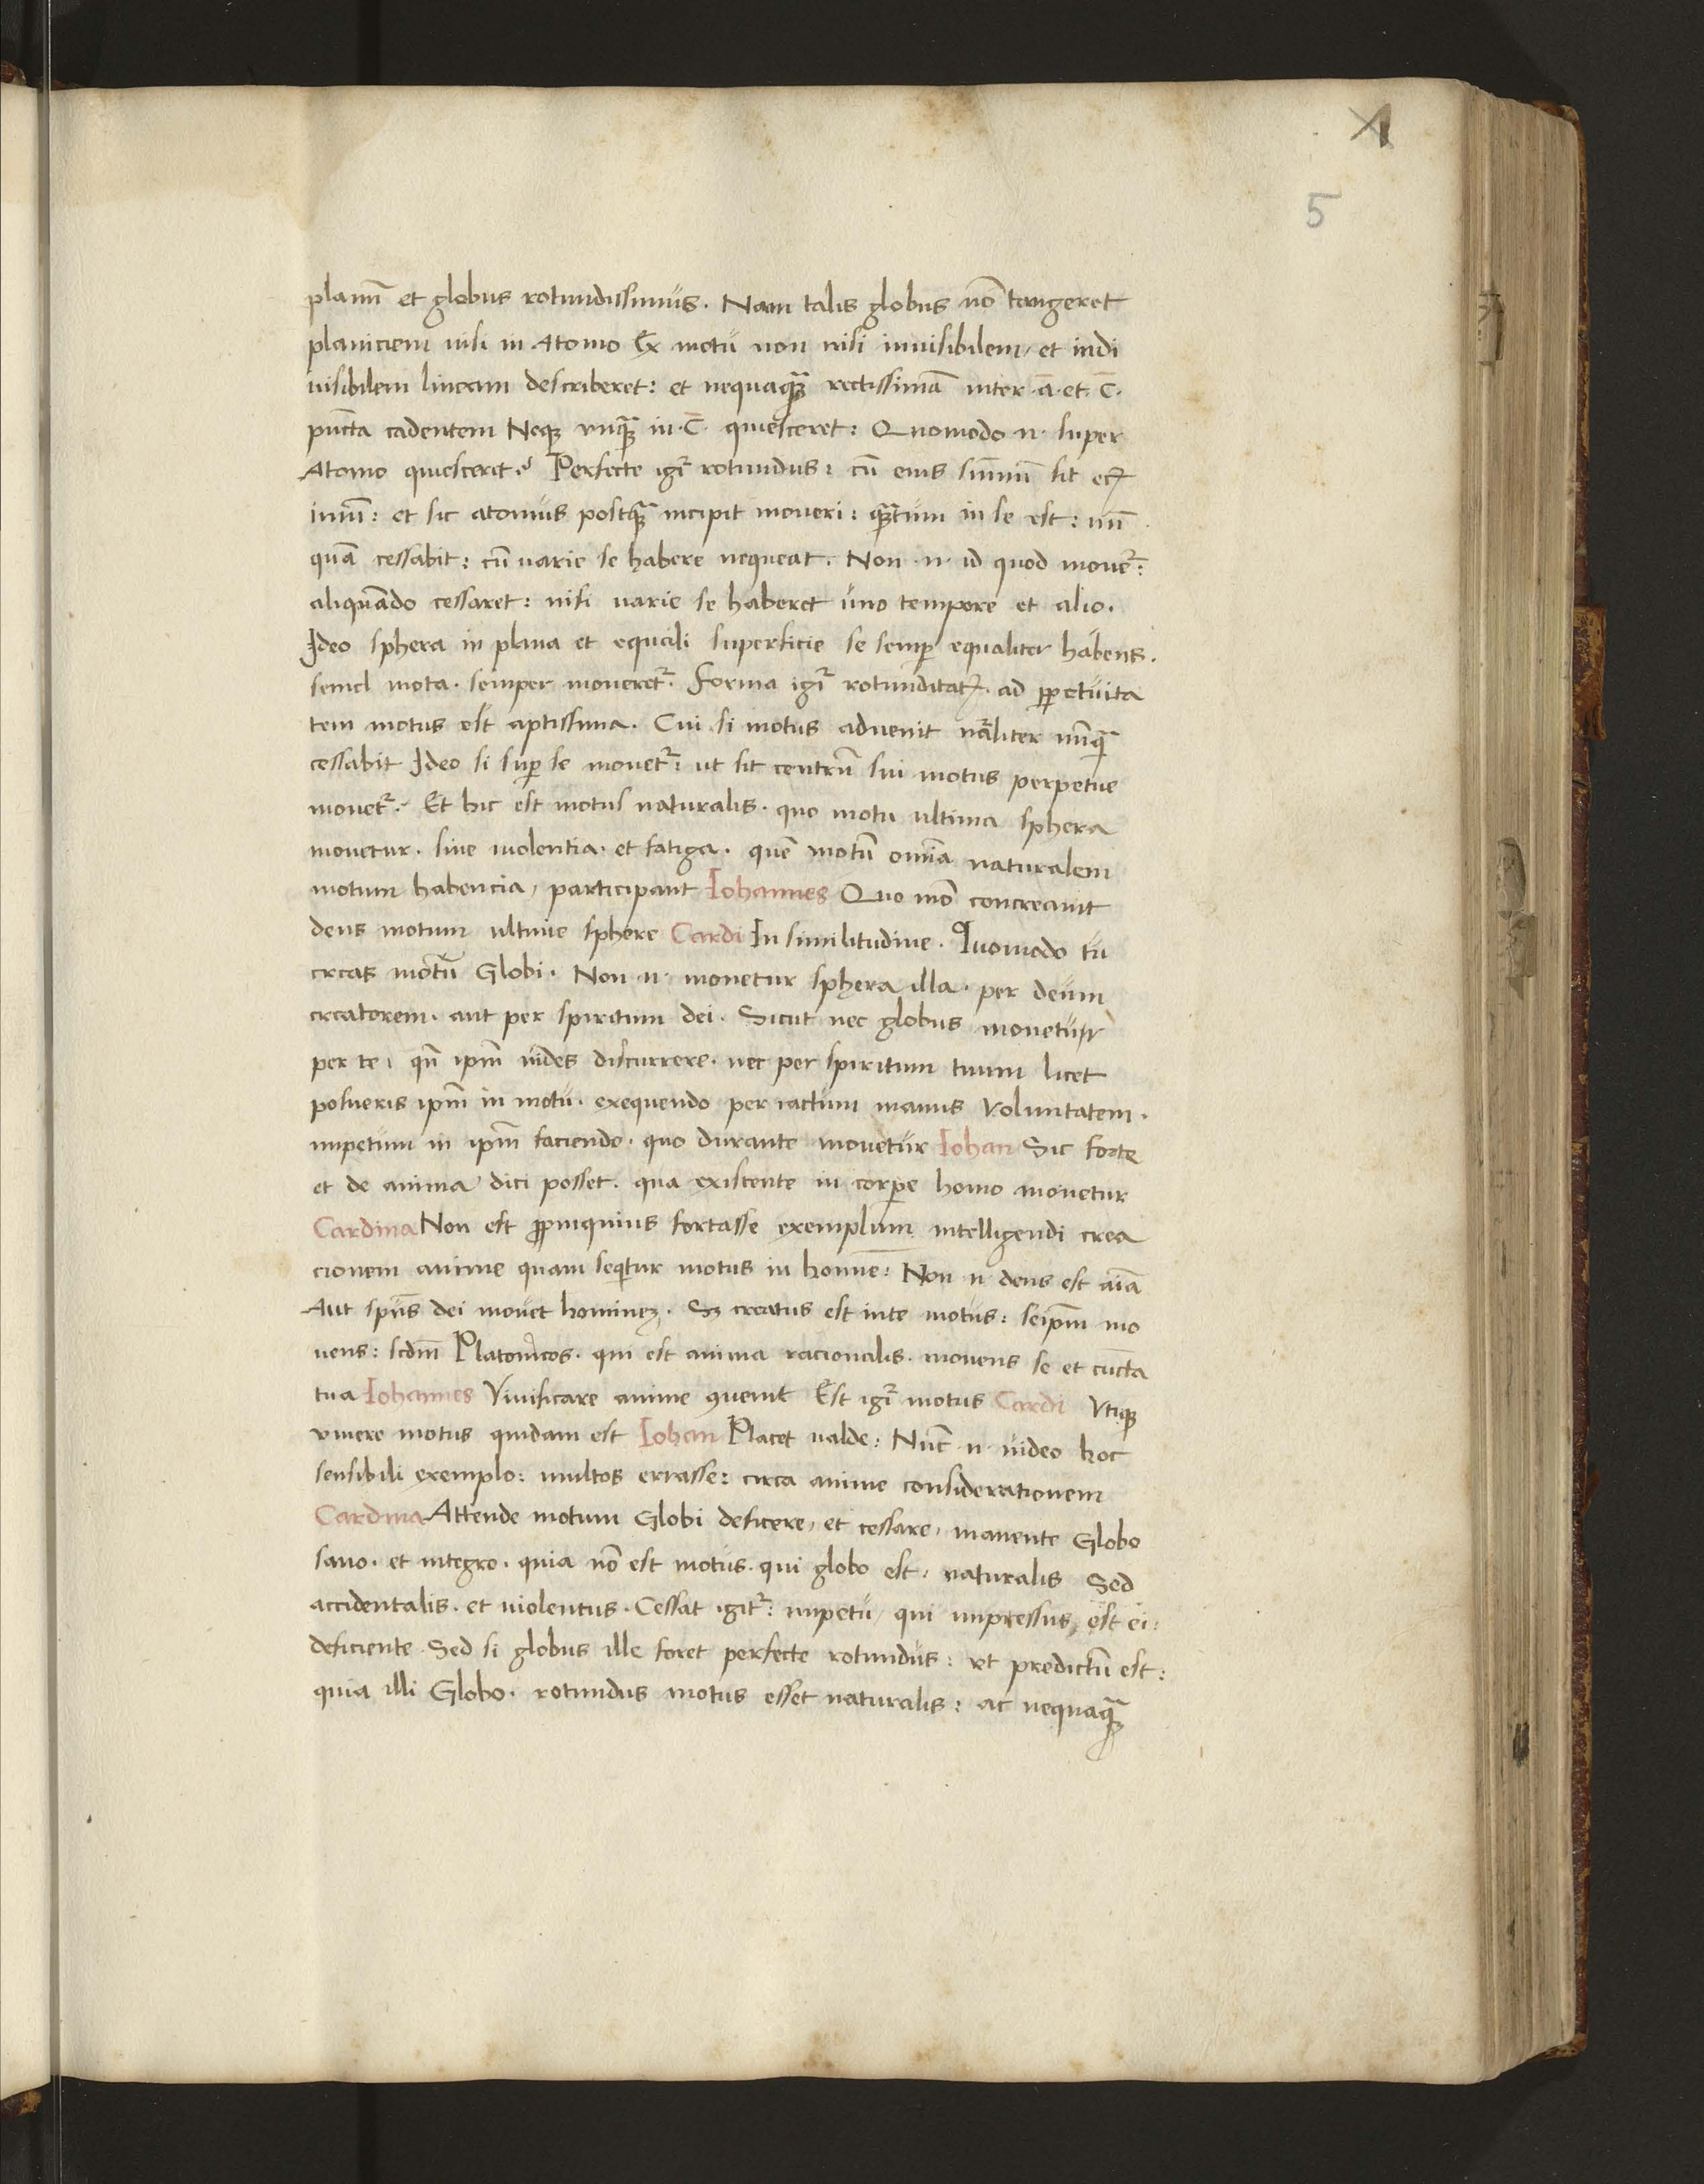 5
planū et globus rotundissimus. Nam talis globus nō tangeret
planiciem nisi in Atomo Ex motu non nisi inuisibilem, et indi
uisibilem lineam describeret: et nequaqȝ rectissimā inter ·a· et ·c·
pūcta cadentem Neqȝ vnqȝ in ·c· quiesceret: Quomodo ·n· super
Atomo quiescerit? Perfecte igr̄ rotundus: cū eius sūmū sit
imū: et sic atomus postqȝ incipit moueri: qȝtum in se est: nū
quā cessabit: cū varie se habere nequeat. Non ·n· id quod mouer̄:
aliquādo cessaret: nisi varie se haberet uno tempore et alio.
Ideo sphera in plana et equali superficie se semꝑ equaliter habens.
semel mota. semper moueretr̄. Forma igr̄ rotunditatꝭ. ad ꝑpetuita
tem motus est aptissima. Cui si motus aduenit nāliter nūqȝ
cessabit Ideo si suꝑ se mouetr̄: ut sit centrū sui motus perpetue
mouetr̄. Et hic est motus naturalis. quo motu ultima sphera
mouetur. sine uiolentia. et fatiga. quē motū omīa naturalem
motum habencia, participant Iohannes Quo mō concreauit
deus motum ultime sphere Cardi In similitudine. Quomodo tu
creas motū Globi. Non ·n· mouetur sphera illa. per deum
creatorem. aut per spiritum dei. Sicut nec globus mouetur
per te, qn̄ ipm̄ uides discurrere. nec per spiritum tuum licet
posueris ipm̄ in motu. exequendo per iactum manus voluntatem.
impetum in ipm̄ faciendo. quo durante mouetur Iohan Sic forte
et de anima dici posset. qua existente in corꝑe homo mouetur
Cardina Non est ꝓpinquius fortasse exemplum intelligendi crea
cionem anime quam seqitur motus in homīe: Non ·n· deus est aīa
Aut spūs dei mouet hominez. Sȝ creatus est inte motus: seipm̄ mo
uens: scdm̄ Platonicos. qui est anima racionalis. mouens se et cūcta
tua Iohannes Viuificare anime ꝯuenit Est igr̄ motus Cardi Vtiqȝ
viuere motus quidam est Iohan Placet ualde: Nūc ·n· uideo hoc
sensibili exemplo: multos errasse: circa anime considerationem
Cardina Attende motum Globi deficere, et cessare, manente Globo
sano. et integro. quia nō est motus. qui globo est, naturalis Sed
accidentalis. et uiolentus. Cessat igitr̄: impetu, qui impressus est ei:
deficiente Sed si globus ille foret perfecte rotundus: ut predictū est:
quia illi Globo. rotundus motus esset naturalis: ac nequaqȝ